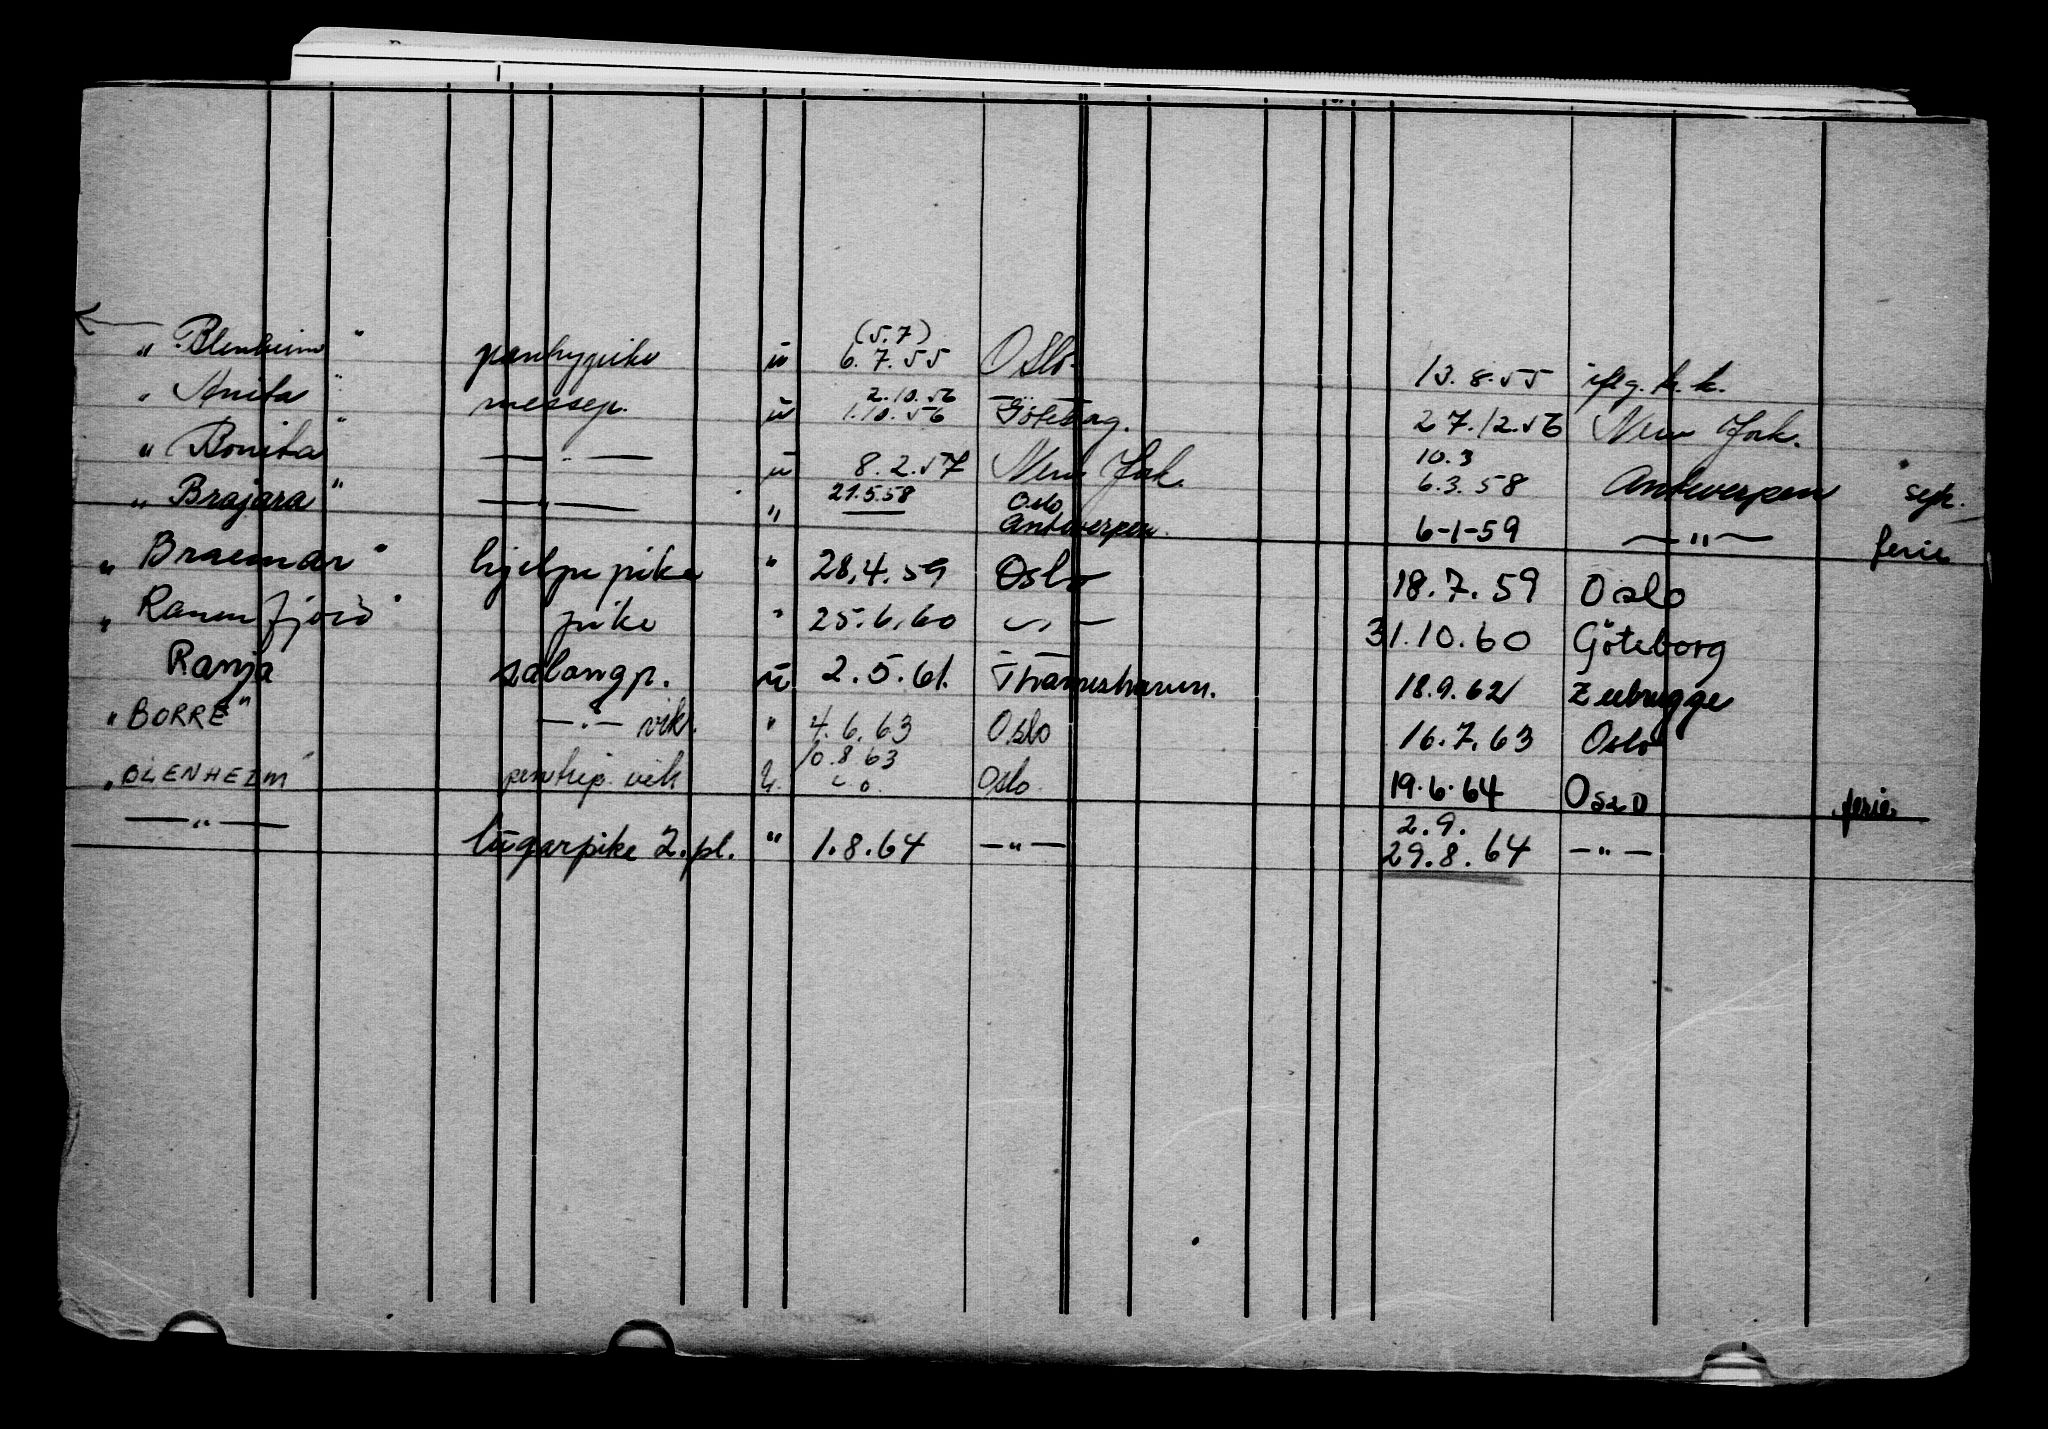 "Blenheim" pantrypike u (5.7) 6.7.55 Oslo 13.8.55 iflg. k. k.
"Anita" messep. u 2.10.56 1.10.56 Göteborg. 27.12.56 New York.
"Bonita" —"— u 8.2.57 New York. 10.3 6.3.58 Antwerpen syk.
"Brajara" —"— " 21.5.58 Oslo Antwerpen. 6-1-59 —"— ferie
"Braemar" hjelpepike " 28.4.59 Oslo 18.7.59 Oslo
"Ranenfjord" pike " 25.6.60 —"— 31.10.60 Göteborg
Ranja salongp. u 2.5.61. Thamshavn. 18.9.62 Zeebrugge
"BORRE" —"— vik. " 4.6.63 Oslo 16.7.63 Oslo
"BLENHEIM" pentrip. vik u. 10.8.63 Oslo 19.6.64 Oslo ferie
—"— lugarpike 2. pl. " 1.8.64 —"— 2.9. 29.8.64 —"—